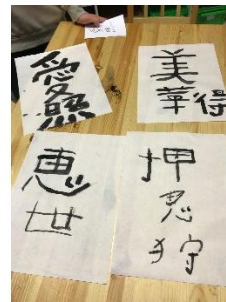 愛照
美華得
恵世
押忍狩